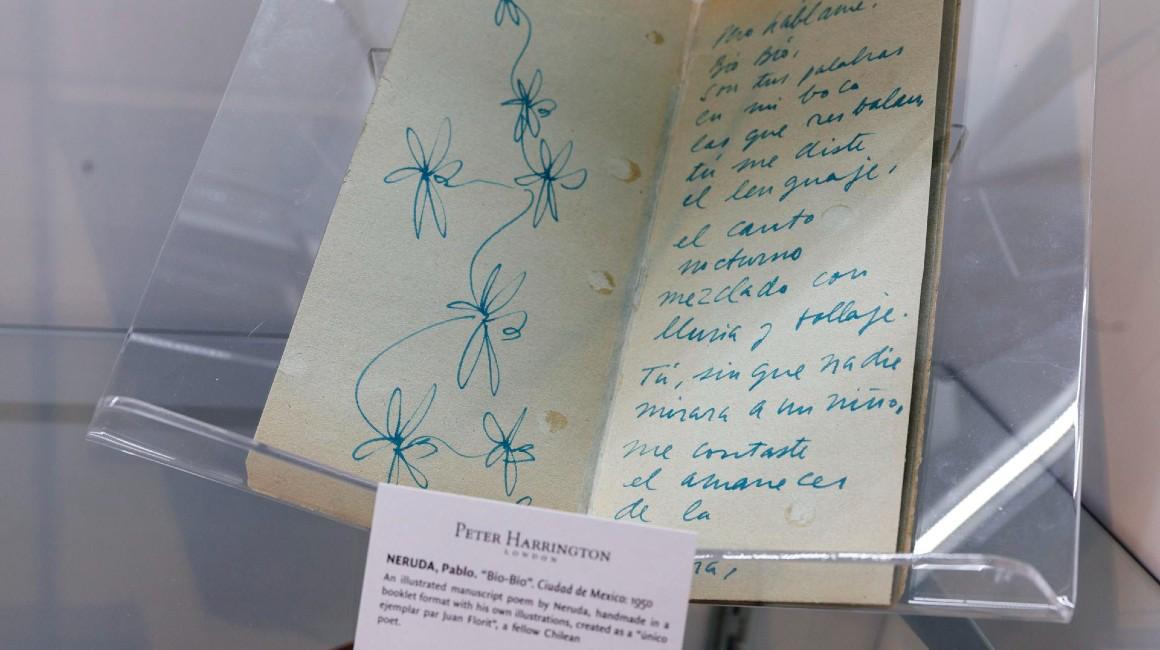 Pero háblame.
Bío Bío,
son tus palabras
en mi boca
las que resbalan
tú me diste
el lenguaje,
el canto
nocturno
mezclado con
lluvia y follaje.
Tú, sin que nadie
mirara a un niño,
me contaste
el amanecer
de la
ra,
PETER HARRINGTON
LONDON
NERUDA, Pablo. "Bio-Bío". Ciudad de Mexico: 1950
An illustrated manuscript poem by Neruda, handmade in a
booklet format with his own illustrations, created as a "único
ejemplar par Juan Florit", a fellow Chilean
poet.